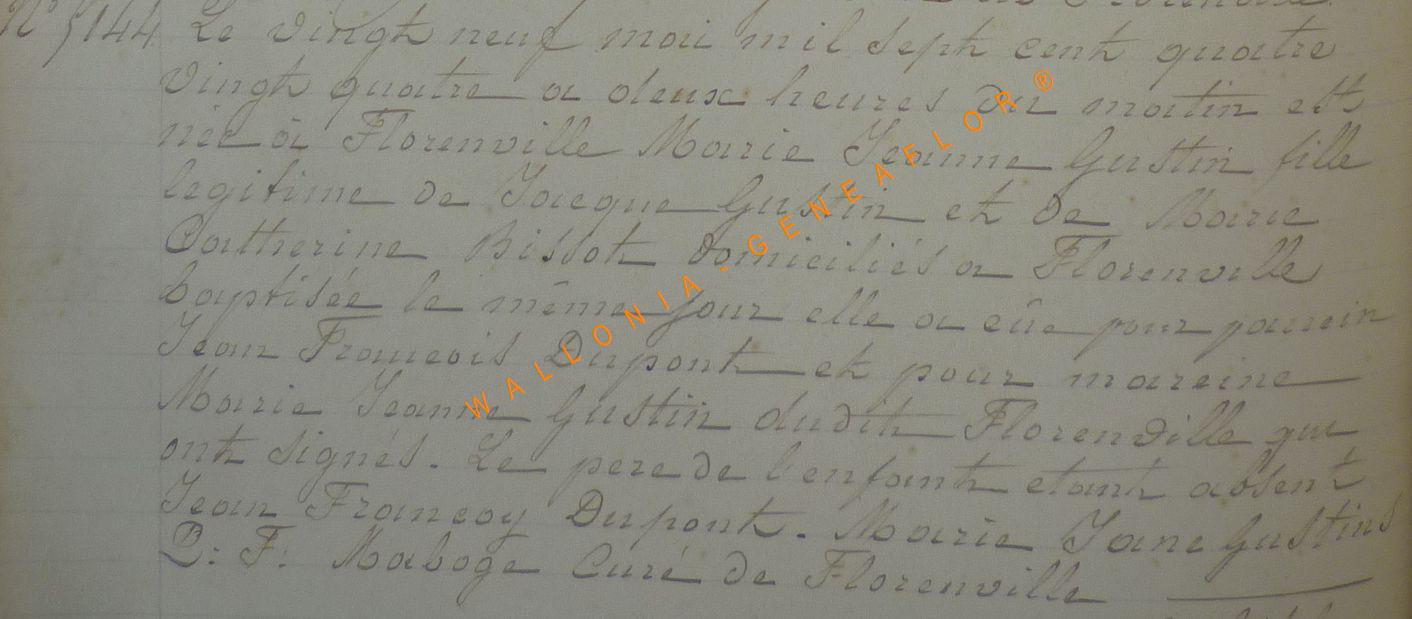 N° 5144 Le vingt neuf mai mil sept cent quatre
vingt quatre a deux heures du matin est
née à Florenville Marie Jeanne Gustin fille
legitime de Jacque Gustin et de Marie
Catherine Bissot domiciliés a Florenville
baptisée le même jour elle a eûe pour parein
Jean Francois Dupont et pour mareine
Marie Jeanne Gustin dudit Florenville qui
ont signés. Le pere de l'enfant etant absent
Jean Francoy Dupont. Marie Jane Gustins
P: F: Maboge Curé de Florenville
WALLONIA - GENEAFLOR®